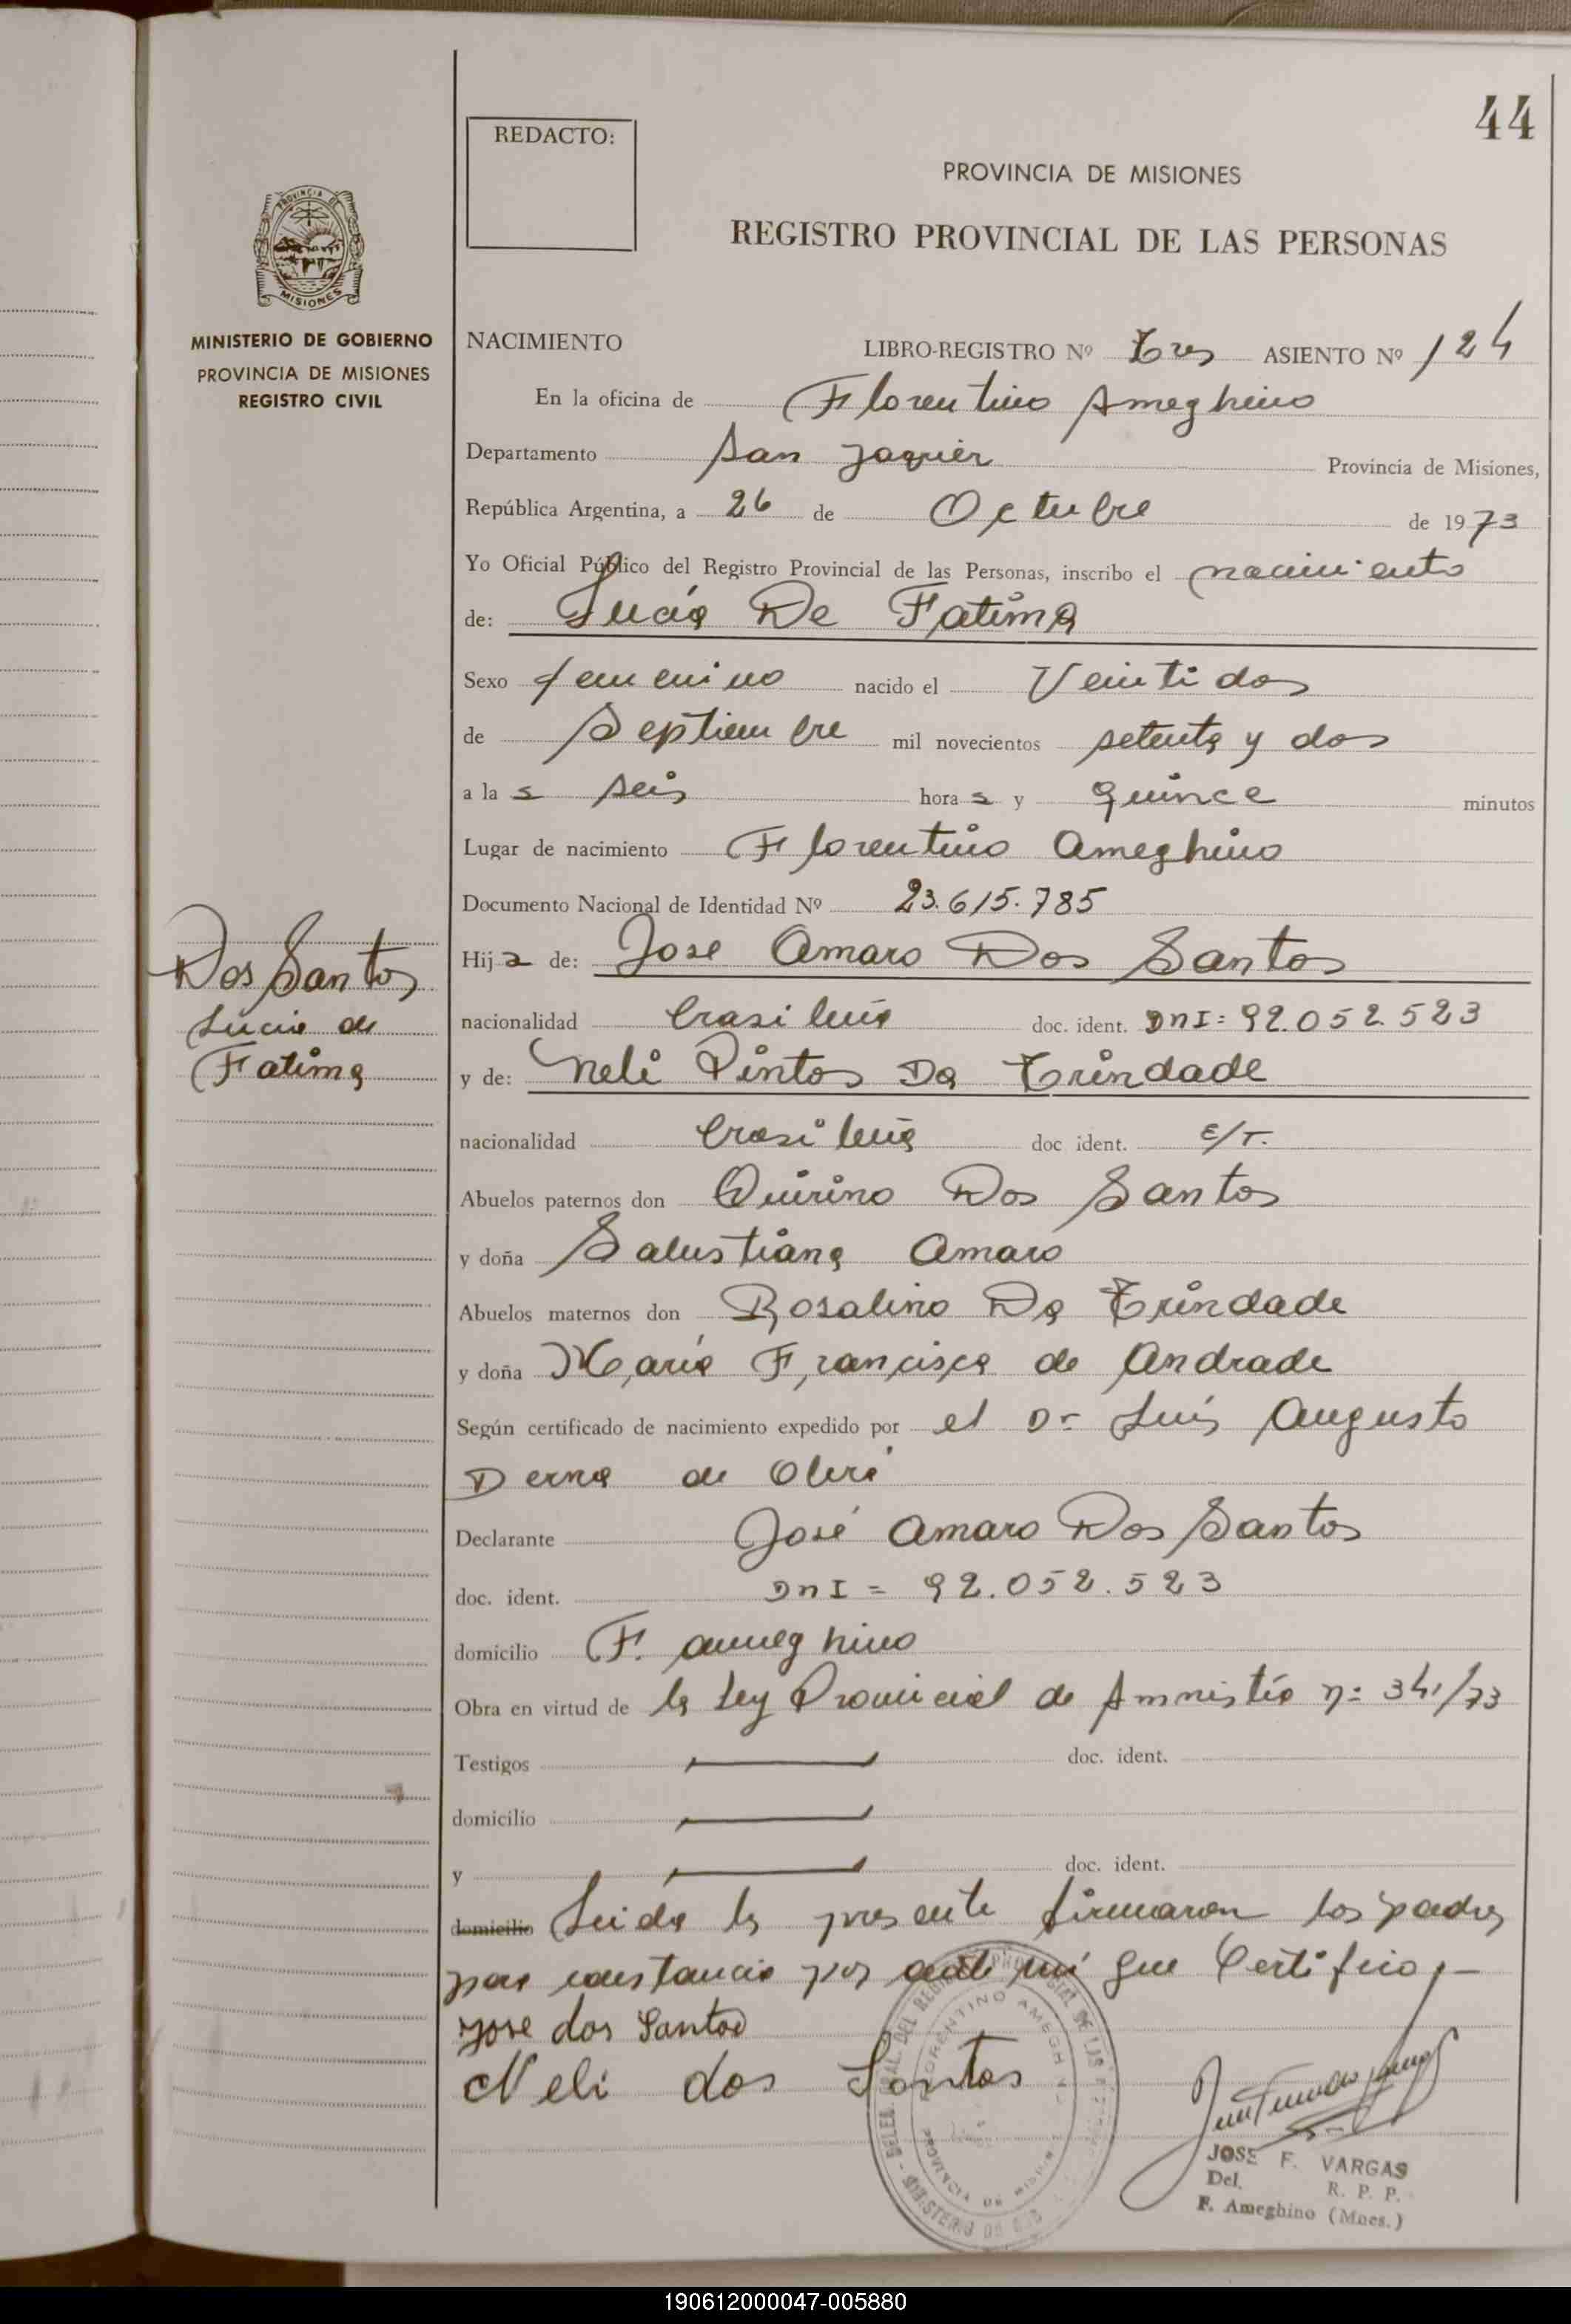 44
REDACTO:
PROVINCIA DE MISIONES
REGISTRO PROVINCIAL DE LAS PERSONAS
PROVINCIA DE
MISIONES
MINISTERIO DE GOBIERNO
PROVINCIA DE MISIONES
REGISTRO CIVIL
NACIMIENTO LIBRO-REGISTRO Nº Tres ASIENTO Nº 124
En la oficina de Florentino Ameghino
Departamento San Javier Provincia de Misiones,
República Argentina, a 26 de Octubre de 1973
Yo Oficial Público del Registro Provincial de las Personas, inscribo el nacimiento
de: Lucía De Fatima
Sexo femenino nacido el Veintidos
de Septiembre mil novecientos setenta y dos
a las seis horas y quince minutos
Lugar de nacimiento Florentino Ameghino
Documento Nacional de Identidad Nº 23.615.785
Hija de: Jose Amaro Dos Santos
nacionalidad brasileña doc. ident. DNI= 92.052.523
y de: Neli Pintos Da Trindade
nacionalidad brasileña doc ident. E/T.
Abuelos paternos don Quirino Dos Santos
y doña Salustiana Amaro
Abuelos maternos don Rosalino Da Trindade
y doña María Francisca de Andrade
Según certificado de nacimiento expedido por el Dr Luis Augusto
Derna de Oberá
Declarante José Amaro Dos Santos
doc. ident. DNI = 92.052.523
domicilio F. Ameghino
Obra en virtud de la Ley Provincial de Amnistía nº 341/73
Testigos doc. ident.
domicilio
y doc. ident.
domicilio Leida la presente firmaron los padres
para constancia por ante mí que Certifico.-
Jose dos Santos
Neli dos Santos
Dos Santos
Lucia de
Fatima
JOSE F. VARGAS
Del. R. P. P.
F. Ameghino (Mnes.)
190612000047-005880